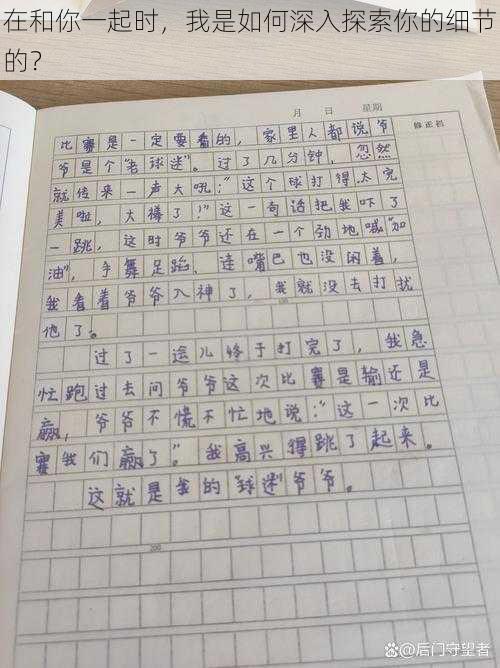 在和你一起时，我是如何深入探索你的细节
的？
月 日 星期
修正栏
比赛是一定要看的，家里人都说爷
爷是个“老球迷”。过了几分钟，忽然
就传来一声大吼：“这个球打得太完
美啦，太棒了！”这一句话把我吓了
一跳，这时爷爷还在一个劲地喊“加
油”，手舞足蹈，连嘴巴也没闲着，
我看着爷爷入神了，我就没去打扰
他了。
过了一会儿终于打完了，我急
忙跑过去问爷爷这次比赛是输还是
赢，爷爷不慌不忙地说：“这一次比
赛我们赢了”。我高兴得跳了起来。
这就是我的“球迷”爷爷。
200
@后门守望者